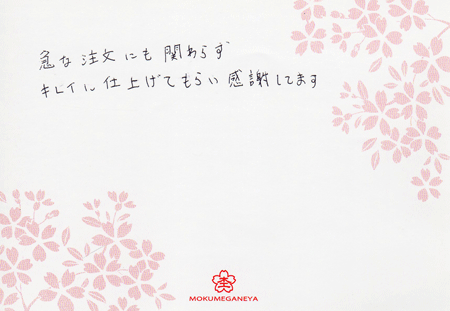 急な注文にも関わらず
キレイに仕上げてもらい感謝してます
MOKUMEGANEYA